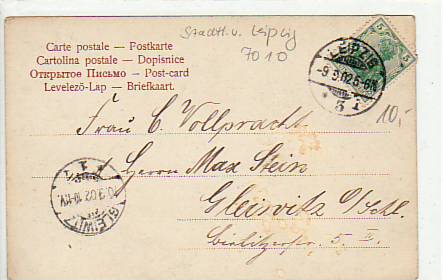 Stadtl. v. Leipzig
7010
Carte postale – Postkarte
Cartolina postale – Dopisnice
Открытое Письмо – Post-card
Levelező-Lap – Briefkarte.
LEIPZIG
-9 5 02 5-6N
* 3 I
5 5
10,-
Frau C. Vollpracht
Herrn Max Stein
Gleiwitz O/Schl.
5. II.
GLEIWITZ